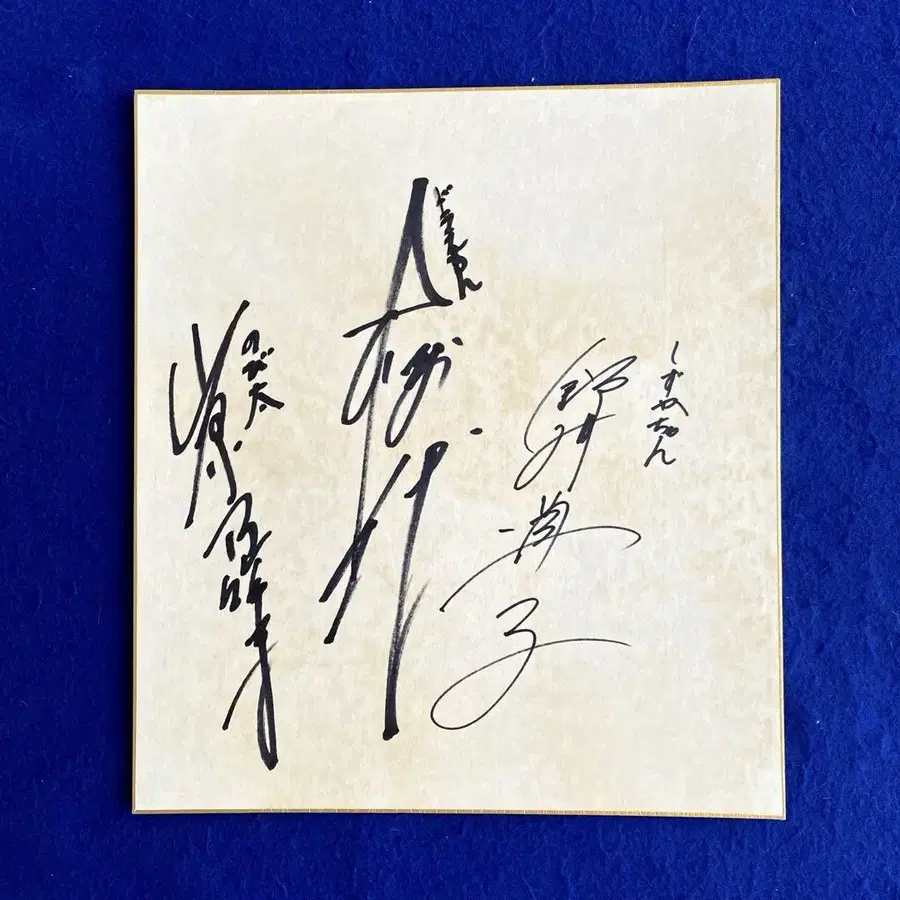 しずかちゃん
野村道子
ドラえもん
大山のぶ代
のび太
小原乃梨子